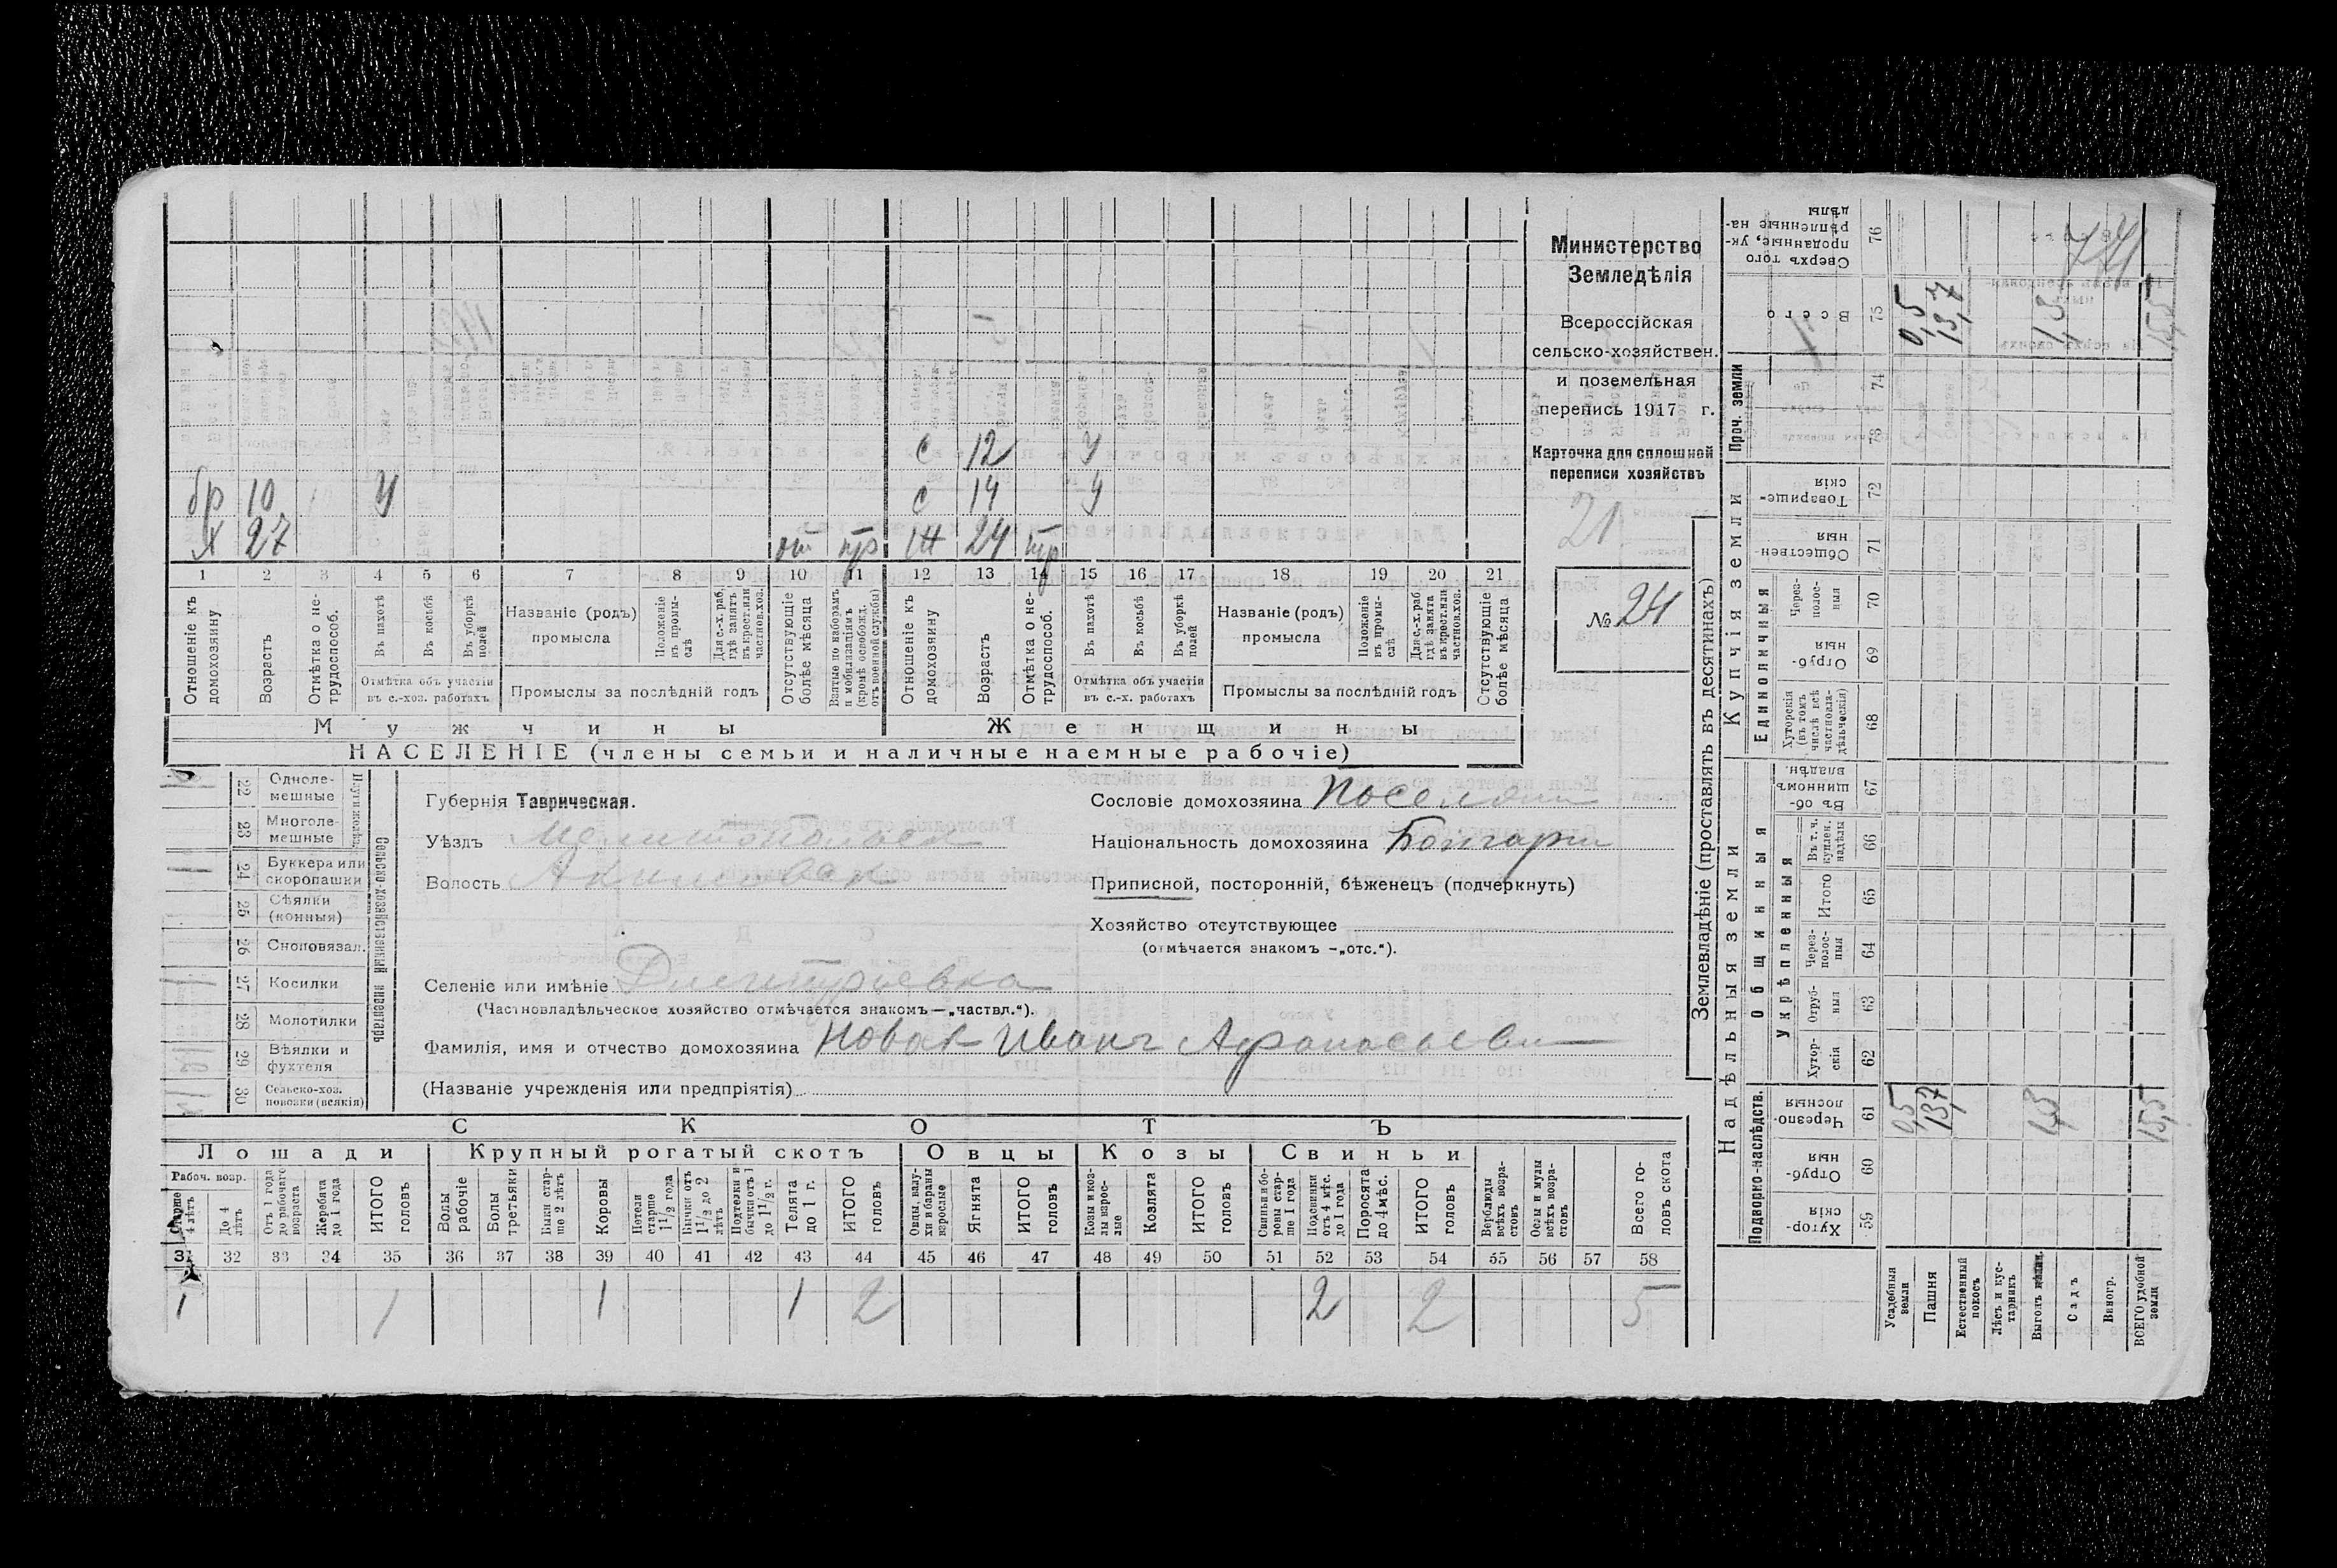 с 12 У
бр 10 У с 14 У
х 27 от пр ж 24 пр
1 2 3 4 5 6 7 8 9 10 11 12 13 14 15 16 17 18 19 20 21
Отношеніе къ домохозяину
Возрастъ
Отмѣтка о нетрудоспособ.
Въ пахотѣ
Въ косьбѣ
Въ уборкѣ полей
Отмѣтка объ участіи
въ с.-хоз. работахъ
Названіе (родъ)
промысла
Положеніе въ промыслѣ
Для с.-х. раб. гдѣ занятъ въ крест. или частнов. хоз.
Промыслы за послѣдній годъ
Отсутствующіе болѣе мѣсяца
Взятые по наборамъ и мобилизаціямъ (кромѣ освобожд. отъ военной службы)
Отношеніе къ домохозяину
Возрастъ
Отмѣтка о нетрудоспособ.
Въ пахотѣ
Въ косьбѣ
Въ уборкѣ полей
Отмѣтка объ участіи
въ с.-х. работахъ
Названіе (родъ)
промысла
Положеніе въ промыслѣ
Для с.-х. раб. гдѣ занята въ крест. или частнов. хоз.
Промыслы за послѣдній годъ
Отсутствующіе болѣе мѣсяца
Мужчины Женщины
НАСЕЛЕНІЕ (члены семьи и наличные наемные рабочіе)
Министерство
Земледѣлія
Всероссійская
сельско-хозяйствен.
и поземельная
перепись 1917 г.
Карточка для сплошной
переписи хозяйствъ
21
№ 24
22 Одноле-
мешные
23 Многоле-
мешные
24 Буккера или
скоропашки
25 Сѣялки
(конныя)
26 Сноповязал.
27 Косилки
28 Молотилки
29 Вѣялки и
фухтеля
30 Сельско-хоз.
повозки (всякія)
Сельско-хозяйственный инвентарь
Губернія Таврическая.
Уѣздъ Мелитопольск
Волость Акимовск
Сословіе домохозяина Поселян
Національность домохозяина Болгары
Приписной, посторонній, бѣженецъ (подчеркнуть)
Хозяйство отсутствующее
(отмѣчается знакомъ –„отс.“).
Селеніе или имѣніе Дмитріевка
(Частновладѣльческое хозяйство отмѣчается знакомъ—„частвл.“).
Фамилія, имя и отчество домохозяина Новак Иванъ Афанасьеви
(Названіе учрежденія или предпріятія)
СКОТЪ
Лошади Крупный рогатый скотъ Овцы Козы Свиньи
Рабоч. возр.
Старше 4 лѣтъ
До 4 лѣтъ
Отъ 1 года до рабочаго возраста
Жеребята до 1 года
ИТОГО головъ
Волы рабочіе
Волы третьяки
Быки старше 2 лѣтъ
Коровы
Нетели старше 1 1/2 года
Бычки отъ 1 1/2 до 2 лѣтъ
Подтелки и бычки отъ 1 до 1 1/2 г.
Телята до 1 г.
ИТОГО головъ
Овцы, валухи и бараны взрослые
Ягнята
ИТОГО головъ
Козы и козлы взрослые
Козлята
ИТОГО головъ
Свиньи и боровы старше 1 года
Подсвинки отъ 4 мѣс. до 1 года
Поросята до 4 мѣс.
ИТОГО головъ
Верблюды всѣхъ возрастовъ
Ослы и мулы всѣхъ возрастовъ
Всего головъ скота
31 32 33 34 35 36 37 38 39 40 41 42 43 44 45 46 47 48 49 50 51 52 53 54 55 56 57 58
1 1 1 1 2 2 2 5
Землевладѣніе (проставлять въ десятинахъ)
Надѣльныя земли
Купчія земли
Проч. земли
Подворно-наслѣдств.
Общинныя
Укрѣпленныя
Единоличныя
Хуторскія 59
Отрубныя 60
Черезполосныя 61
Хуторскія 62
Отрубныя 63
Черезполосныя 64
Итого 65
Въ т. ч. купчен. надѣлы 66
Въ общинномъ владѣн. 67
Хуторскія (въ томъ числѣ всѣ частновладѣльческія) 68
Отрубныя 69
Черезполосныя 70
Общественныя 71
Товарищескія 72
73
74
Всего 75
Сверхъ того проданные, укрѣпленные надѣлы 76
Усадебныя земли
Пашня
Естественный покосъ
Лѣсъ и кустарникъ
Выгонъ
Садъ
Виногр.
ВСЕГО удобной земли
0,5 13,7 1,3 15,5
0,5 13,7 1,3 15,5